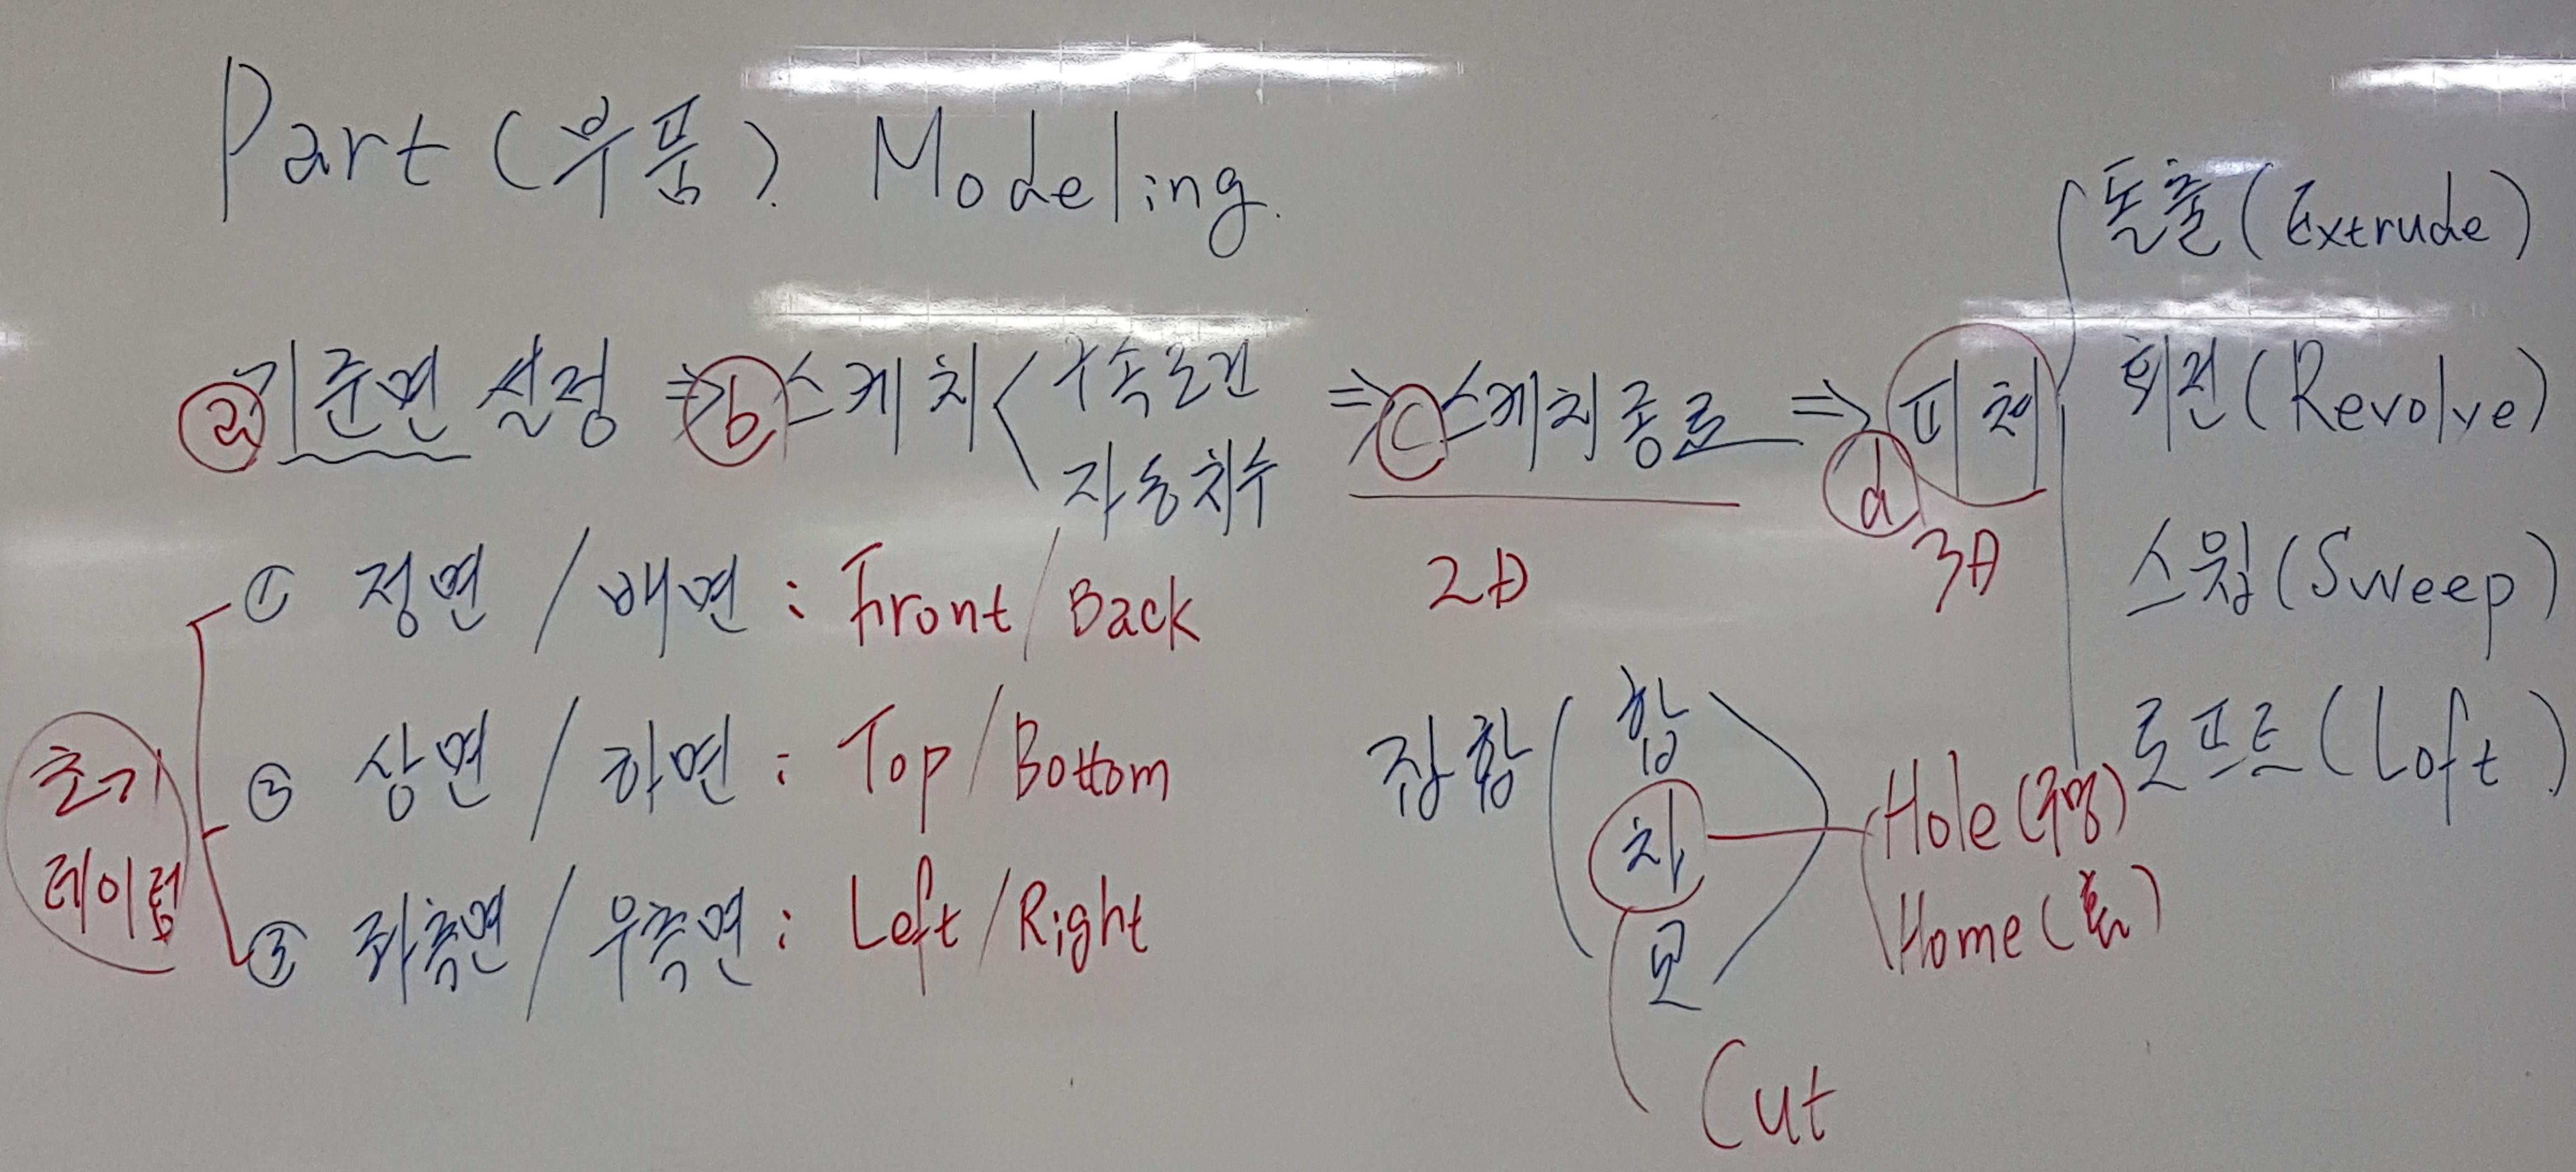 Part (부품). Modeling.
ⓐ 기준면 설정 ⇒ ⓑ 스케치 < 구속조건 자동치수 ⇒ ⓒ 스케치종료 ⇒ ⓓ 피쳐
2D
3D
돌출 (Extrude)
회전 (Revolve)
스윕 (Sweep)
로프트 (Loft)
초기
데이텀
① 정면 / 배면 : Front / Back
② 상면 / 하면 : Top / Bottom
③ 좌측면 / 우측면 : Left / Right
집합 ( 합
차
Hole (구멍)
Home (홈)
Cut